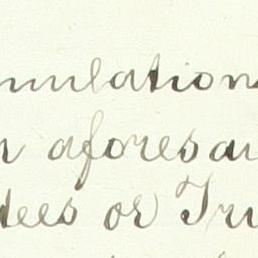 mulation
aforesai
dees or Tru